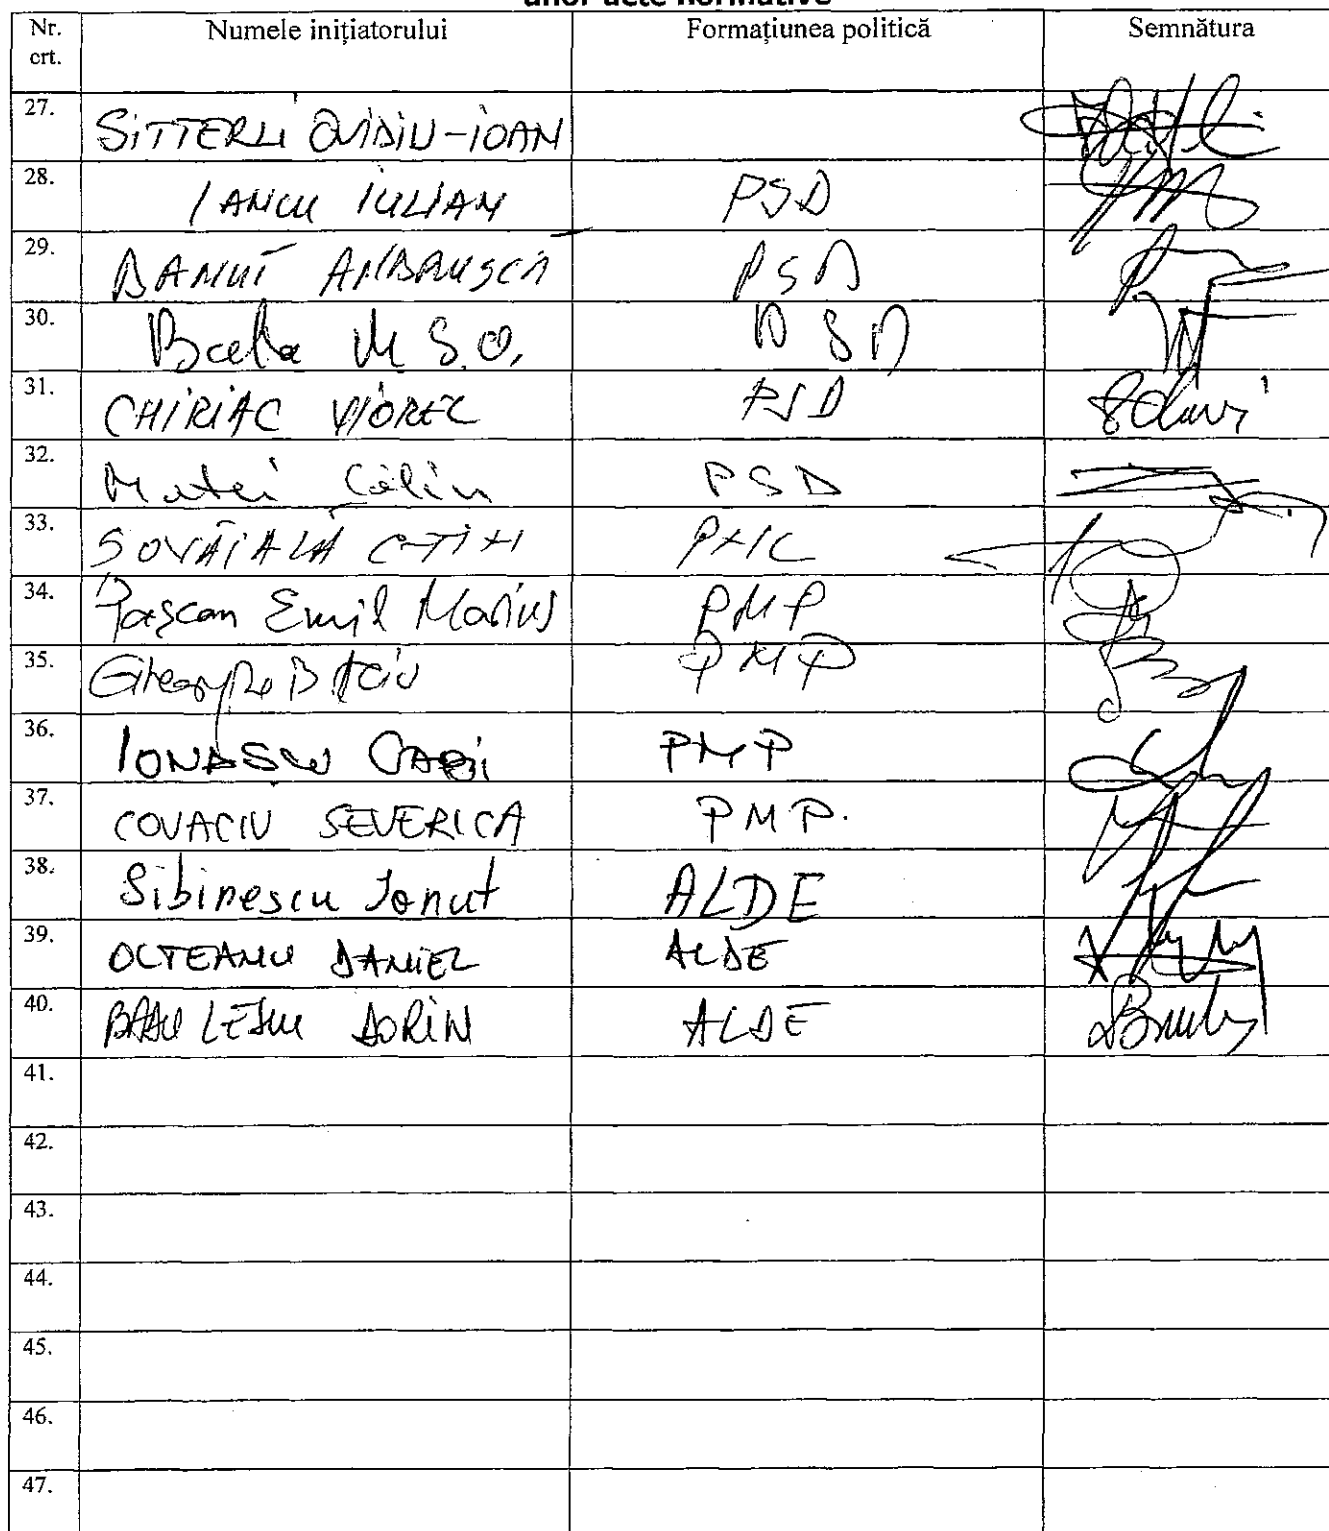 unor acte normative
Nr. crt. Numele inițiatorului Formațiunea politică Semnătura
27. SITTERLI OVIDIU-IOAN
28. IANCU IULIAN PSD
29. BANUȚ AMBRUSCA PSD
30. M S.O. PSD
31. CHIRIAC VIOREL PSD
32. Matei Călin PSD
33. ȘOVĂIALĂ C-TIN PNL
34. Pașcan Emil Marius PMP
35. Gheorghe PMP
36. IONASCU GABI PMP
37. COVACIU SEVERICA PMP.
38. Sibinescu Ionut ALDE
39. OLTEANU DANIEL ALDE
40. DORIN ALDE
41.
42.
43.
44.
45.
46.
47.